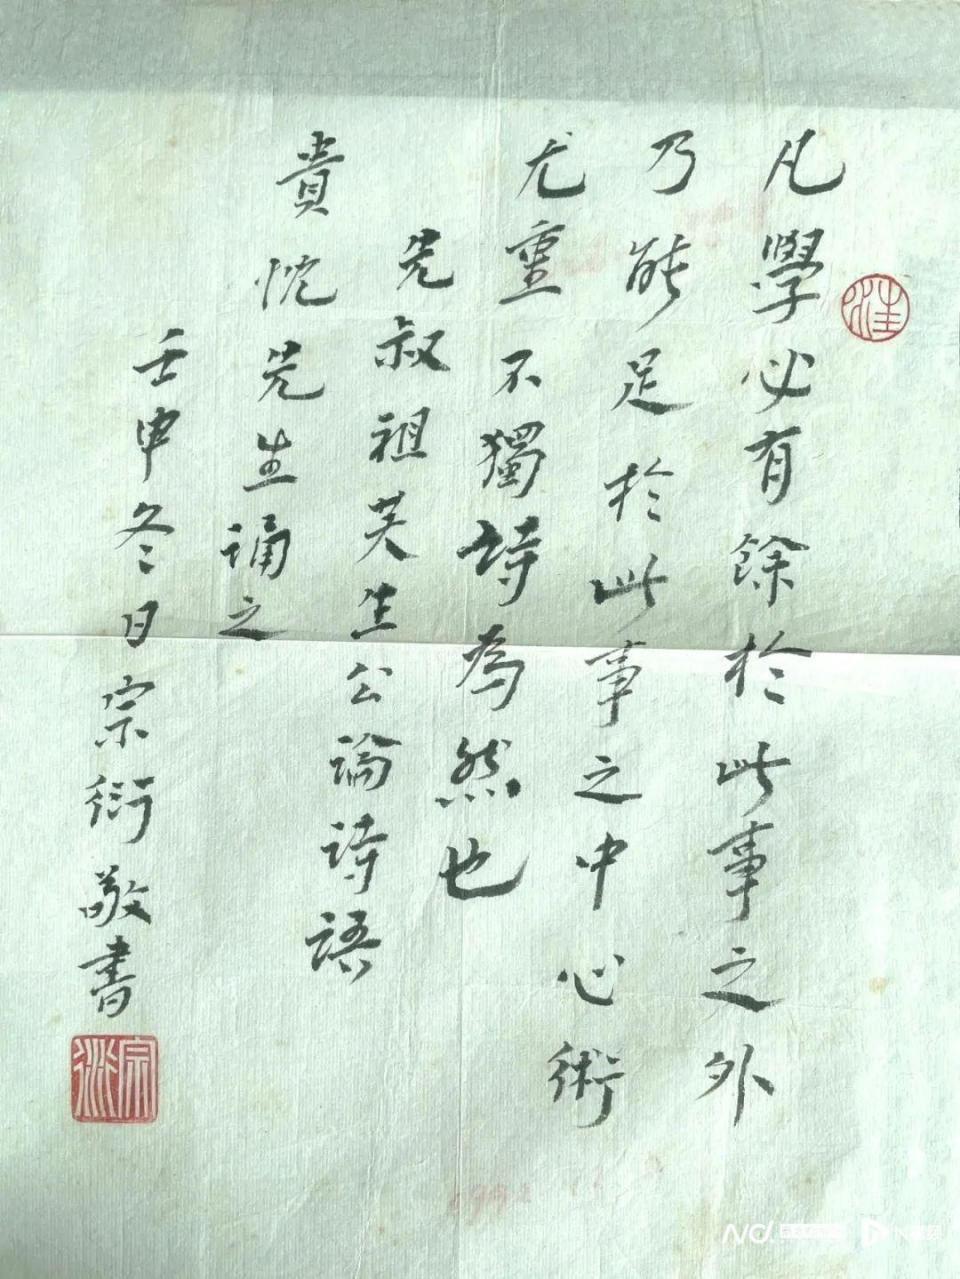 凡學必有餘於此事之外
乃能足於此事之中心術
尤重不獨詩為然也
先叔祖芙生公論詩語
貴忱先生誦之
壬申冬日宗衍敬書
宗衍